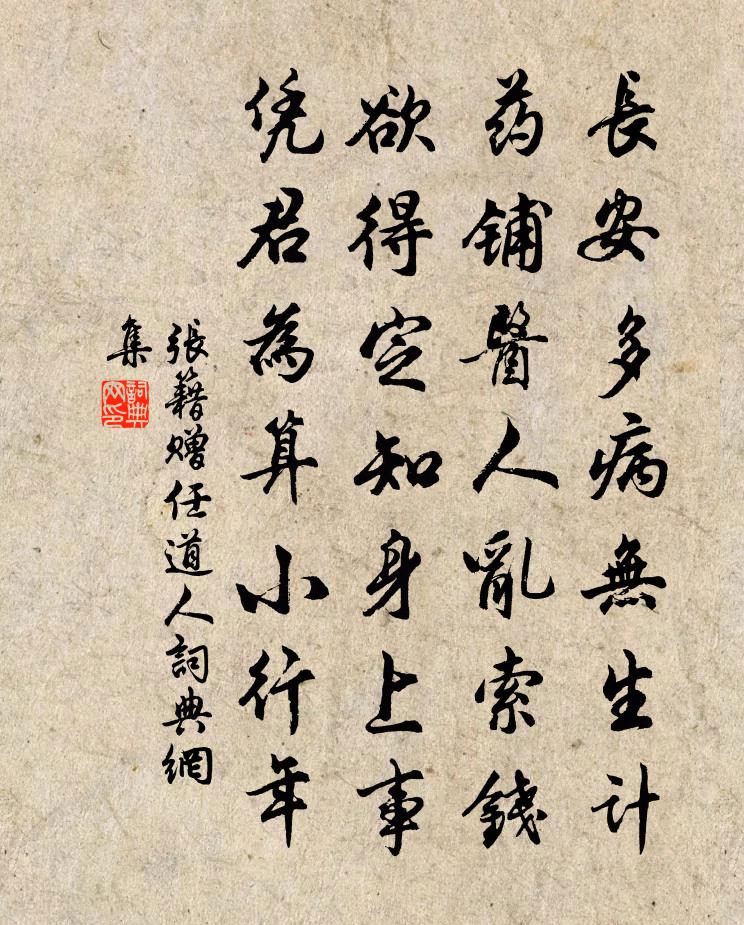 長安多病無生計
药铺醫人亂索錢
欲得定知身上事
凭君為算小行年
張籍赠任道人詞典網
集
詞典
网印